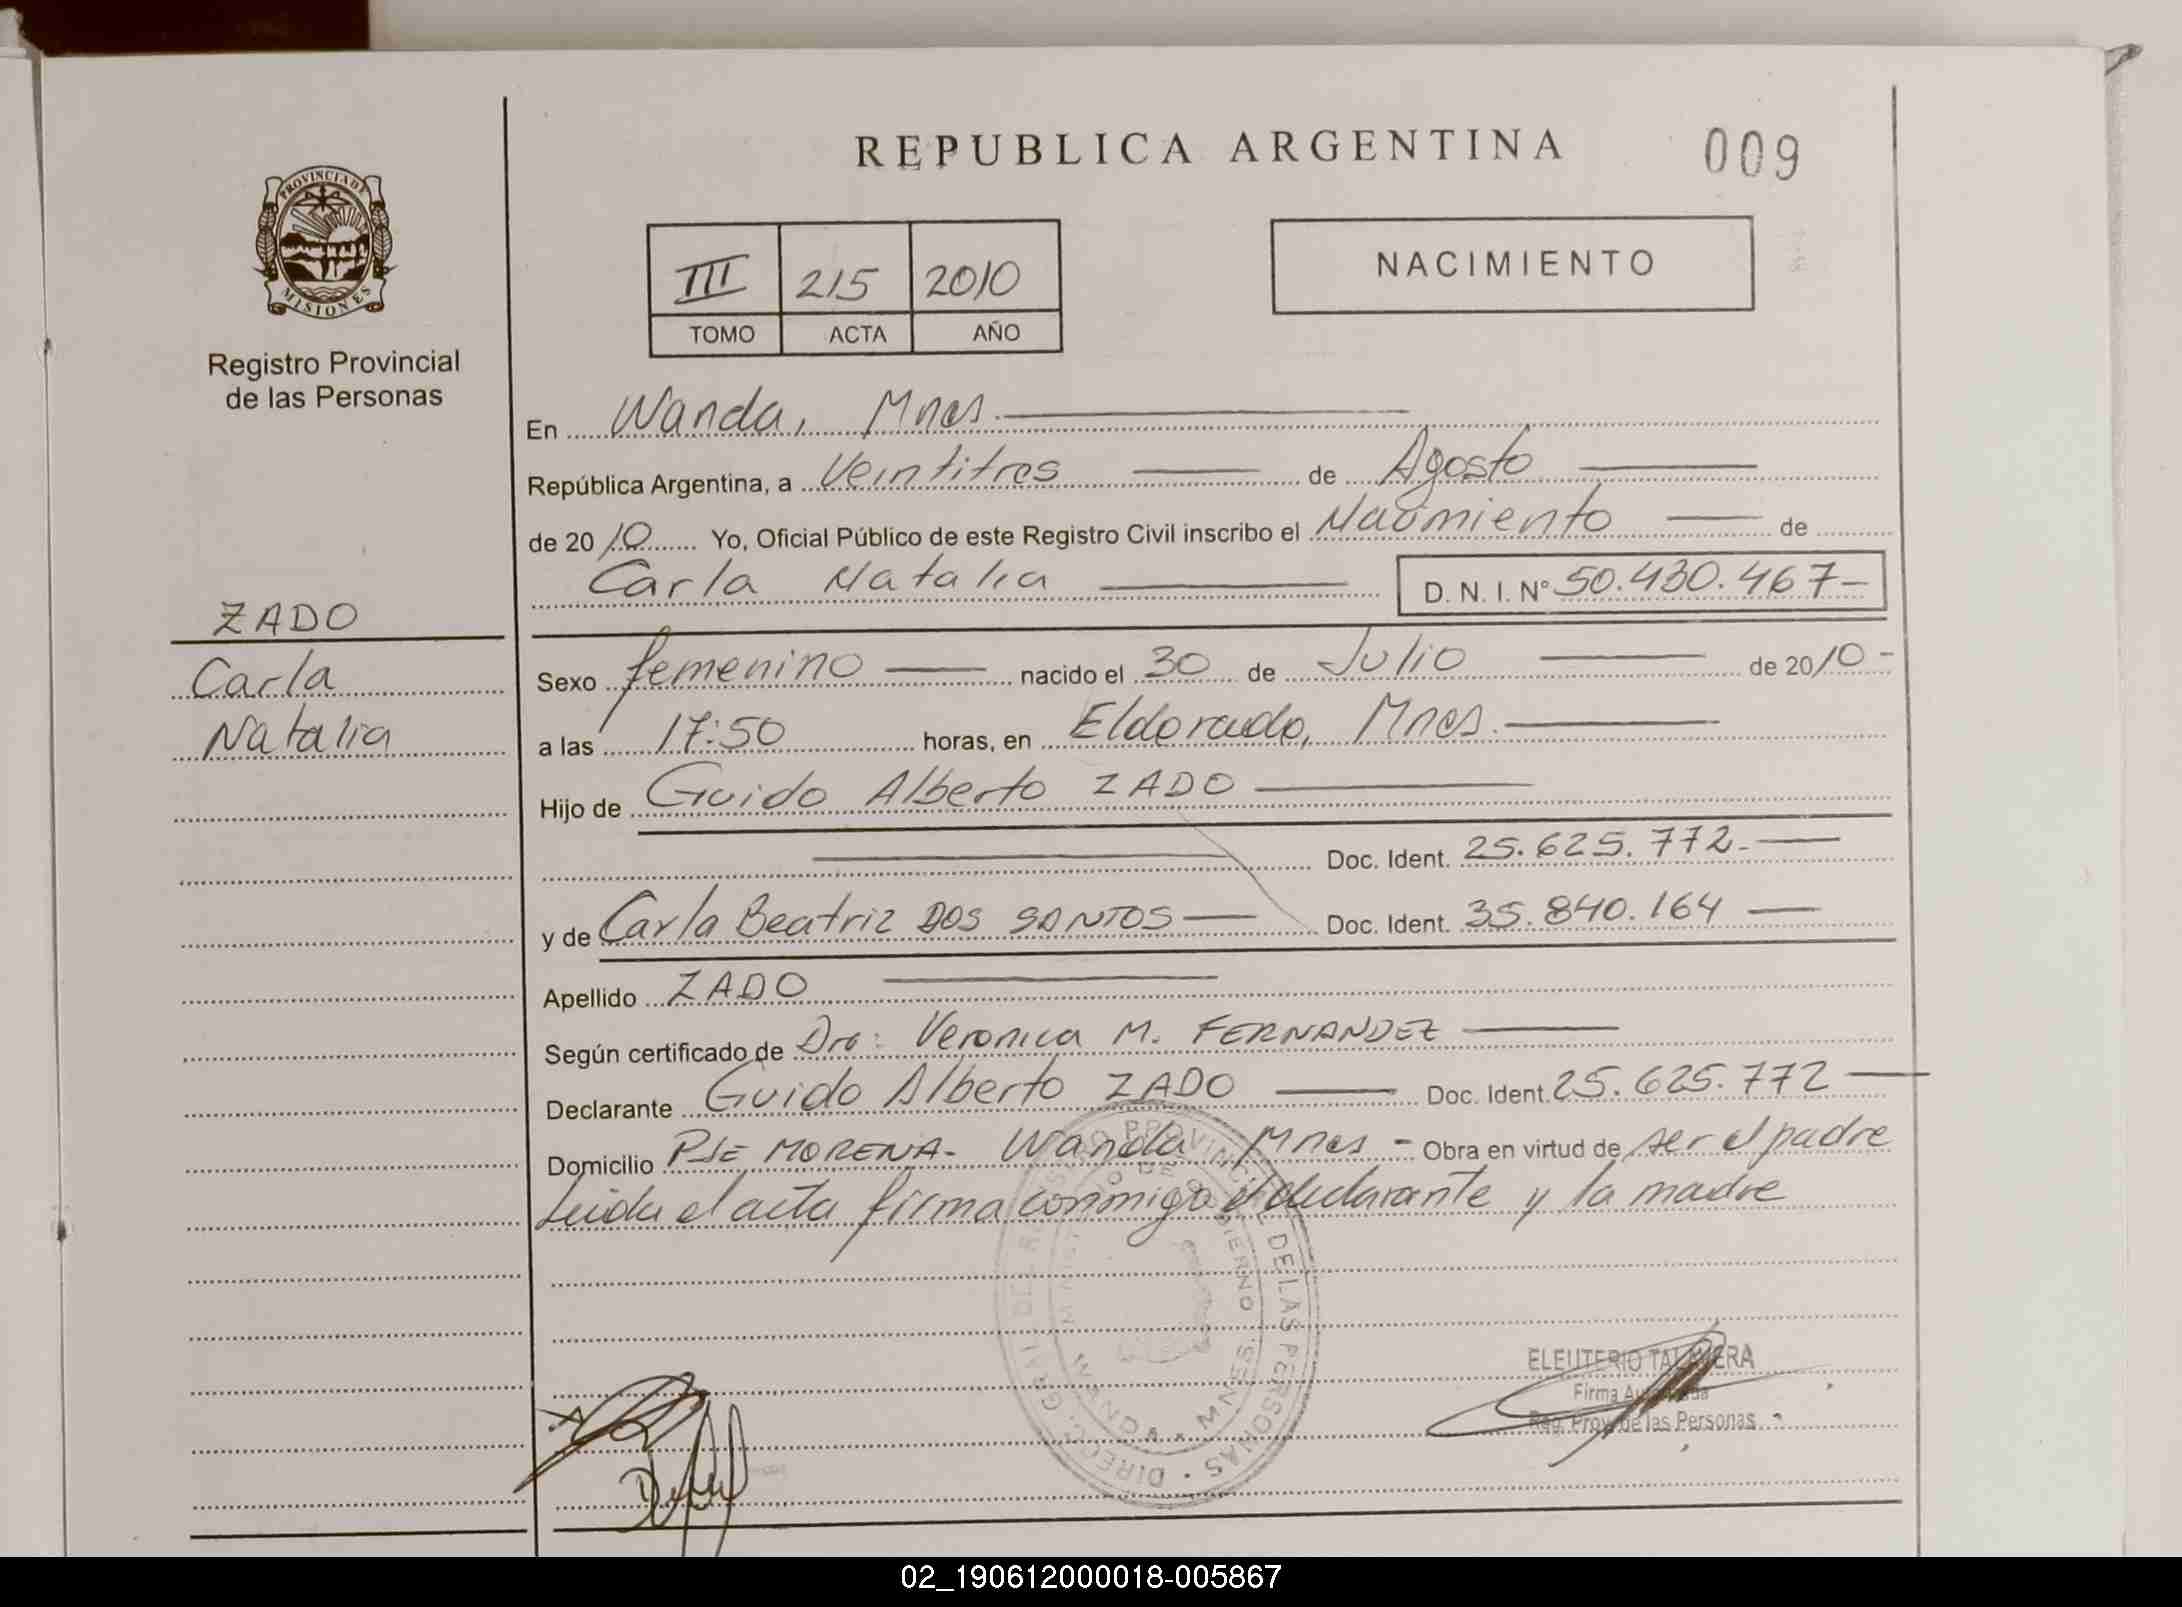 REPUBLICA ARGENTINA
009
PROVINCIA DE
MISIONES
Registro Provincial
de las Personas
III 215 2010
TOMO ACTA AÑO
NACIMIENTO
En Wanda, Mnes.
República Argentina, a Veintitres de Agosto
de 2010 Yo, Oficial Público de este Registro Civil inscribo el Nacimiento de
Carla Natalia D. N. I. Nº 50.430.467-
ZADO
Carla
Natalia
Sexo femenino nacido el 30 de Julio de 2010-
a las 17:50 horas, en Eldorado, Mnes.
Hijo de Guido Alberto ZADO
Doc. Ident. 25.625.772-
y de Carla Beatriz DOS SANTOS Doc. Ident. 35.840.164
Apellido ZADO
Según certificado de Dra: Veronica M. FERNANDEZ
Declarante Guido Alberto ZADO Doc. Ident. 25.625.772
Domicilio PJE MORENA- Wanda Mnes - Obra en virtud de ser el padre
Leida el acta firma conmigo el declarante y la madre
DIRECC. GRAL DEL REGISTRO PROVINCIAL DE LAS PERSONAS
MINISTERIO DE GOBIERNO
WANDA * MNES.
ELEUTERIO TALAVERA
Firma Autorizada
Reg. Prov. de las Personas
02_190612000018-005867